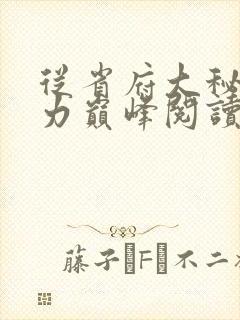 從省府大秘
力巔峰閱讀
藤子·F·不二